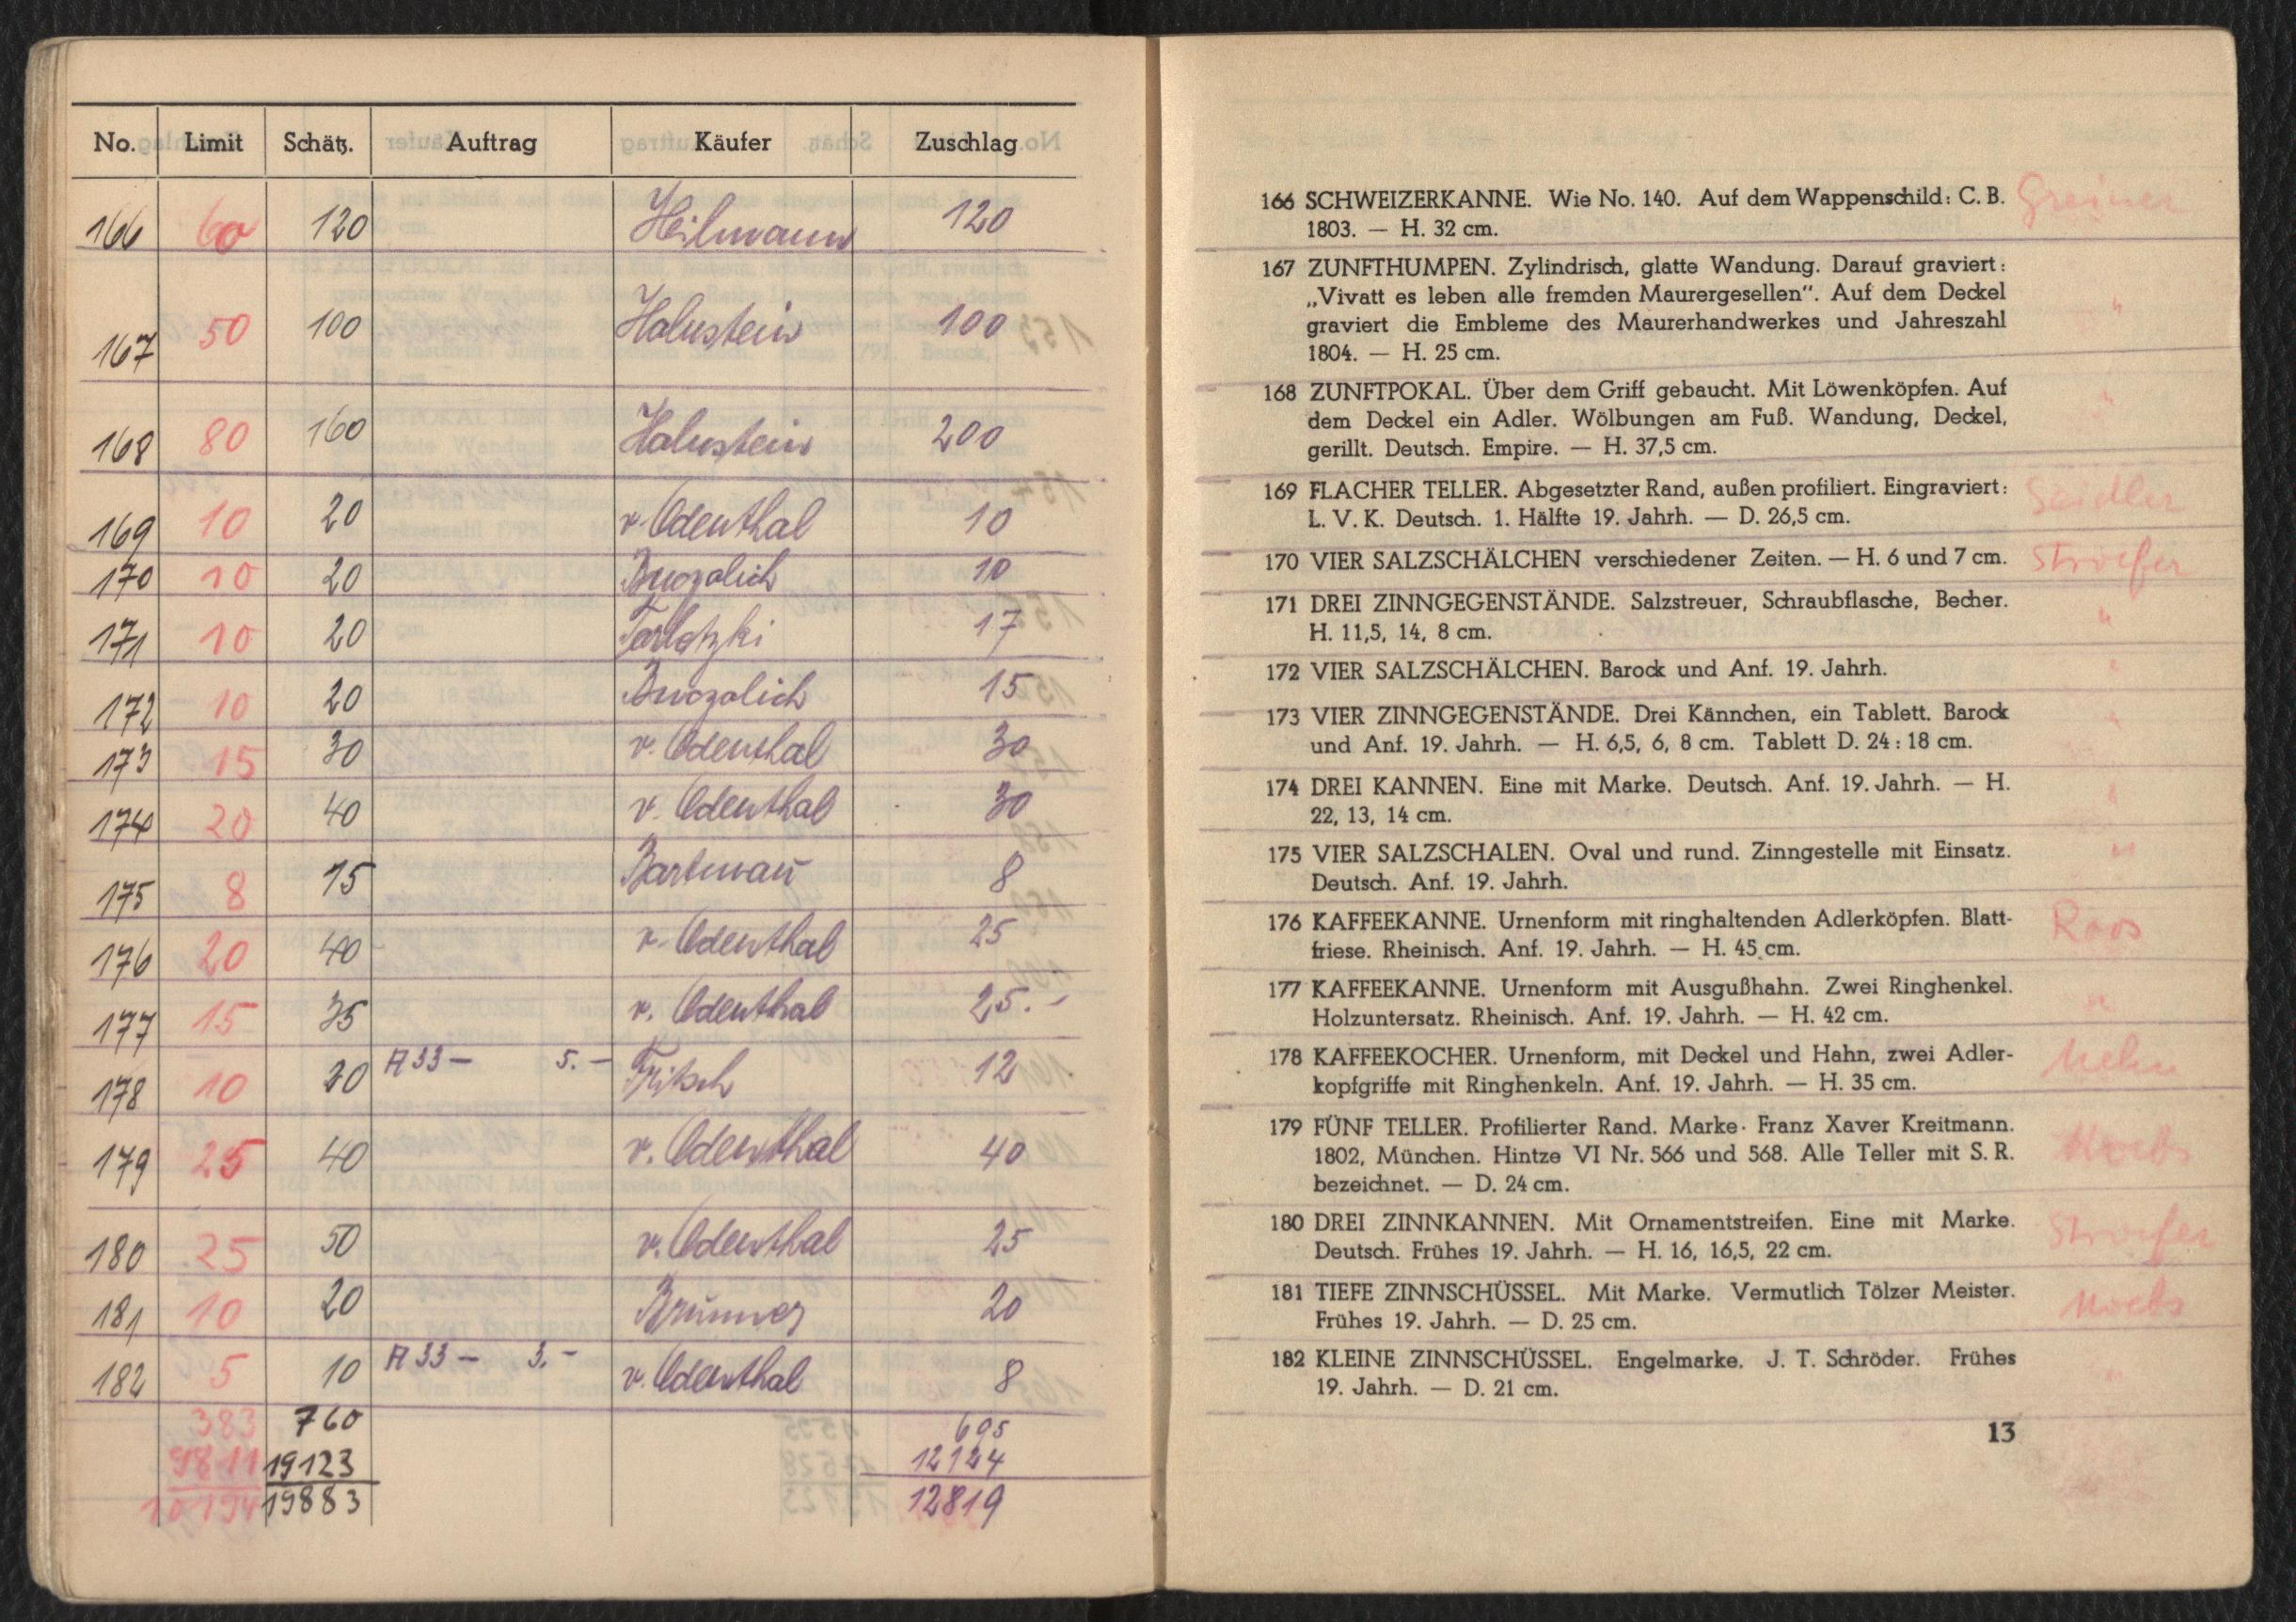 No. Limit Schätz. Auftrag Käufer Zuschlag
166 60 120 Heilmann 120
167 50 100 Halnstein 100
168 80 160 Halnstein 200
169 10 20 v Odenthal 10
170 10 20 10
171 10 20 17
172 10 20 15
173 15 30 v. Odenthal 30
174 20 40 v. Odenthal 30
175 8 15 Bartmañ 8
176 20 40 v. Odenthal 25
177 15 35 v. Odenthal 25.-
178 10 20 A 33 — 5.— Fritsch 12
179 25 40 v. Odenthal 40
180 25 50 v. Odenthal 25
181 10 20 Brunner 20
182 5 10 A 33 — 3.— v. Odenthal 8
383 760 695
9811 19123 12124
10194 19883 12819
166 SCHWEIZERKANNE. Wie No. 140. Auf dem Wappenschild: C. B. Greiner
1803. — H. 32 cm.
167 ZUNFTHUMPEN. Zylindrisch, glatte Wandung. Darauf graviert:
„Vivatt es leben alle fremden Maurergesellen“. Auf dem Deckel "
graviert die Embleme des Maurerhandwerkes und Jahreszahl
1804. — H. 25 cm.
168 ZUNFTPOKAL. Über dem Griff gebaucht. Mit Löwenköpfen. Auf "
dem Deckel ein Adler. Wölbungen am Fuß. Wandung, Deckel,
gerillt. Deutsch. Empire. — H. 37,5 cm.
169 FLACHER TELLER. Abgesetzter Rand, außen profiliert. Eingraviert: Saidler
L. V. K. Deutsch. 1. Hälfte 19. Jahrh. — D. 26,5 cm.
170 VIER SALZSCHÄLCHEN verschiedener Zeiten. — H. 6 und 7 cm. Stroefer
171 DREI ZINNGEGENSTÄNDE. Salzstreuer, Schraubflasche, Becher. "
H. 11,5, 14, 8 cm.
172 VIER SALZSCHÄLCHEN. Barock und Anf. 19. Jahrh. "
173 VIER ZINNGEGENSTÄNDE. Drei Kännchen, ein Tablett. Barock "
und Anf. 19. Jahrh. — H. 6,5, 6, 8 cm. Tablett D. 24 : 18 cm.
174 DREI KANNEN. Eine mit Marke. Deutsch. Anf. 19. Jahrh. — H. "
22, 13, 14 cm.
175 VIER SALZSCHALEN. Oval und rund. Zinngestelle mit Einsatz. "
Deutsch. Anf. 19. Jahrh.
176 KAFFEEKANNE. Urnenform mit ringhaltenden Adlerköpfen. Blatt- Roos
friese. Rheinisch. Anf. 19. Jahrh. — H. 45 cm.
177 KAFFEEKANNE. Urnenform mit Ausgußhahn. Zwei Ringhenkel. "
Holzuntersatz. Rheinisch. Anf. 19. Jahrh. — H. 42 cm.
178 KAFFEEKOCHER. Urnenform, mit Deckel und Hahn, zwei Adler-
kopfgriffe mit Ringhenkeln. Anf. 19. Jahrh. — H. 35 cm.
179 FÜNF TELLER. Profilierter Rand. Marke· Franz Xaver Kreitmann.
1802, München. Hintze VI Nr. 566 und 568. Alle Teller mit S. R. Moebs
bezeichnet. — D. 24 cm.
180 DREI ZINNKANNEN. Mit Ornamentstreifen. Eine mit Marke. Stroefer
Deutsch. Frühes 19. Jahrh. — H. 16, 16,5, 22 cm.
181 TIEFE ZINNSCHÜSSEL. Mit Marke. Vermutlich Tölzer Meister. Moebs
Frühes 19. Jahrh. — D. 25 cm.
182 KLEINE ZINNSCHÜSSEL. Engelmarke. J. T. Schröder. Frühes "
19. Jahrh. — D. 21 cm.
13